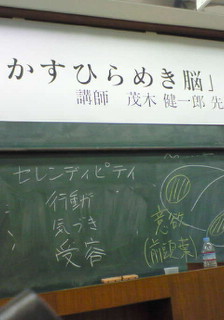 かすひらめき脳」
講師 茂木 健一郎 先
セレンディピティ
行動
気づき
受容
意欲
(前頭葉)